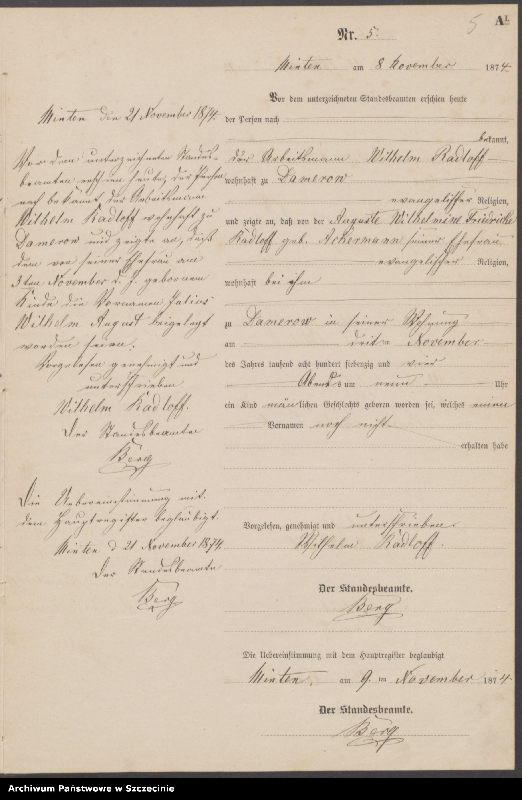 5
A¹
Nr. 5.
Minten am 8 November 1874.
Vor dem unterzeichneten Standesbeamten erschien heute
der Person nach
bekannt,
der Arbeitsmann Wilhelm Radloff
wohnhaft zu Damerow
evangelischer Religion,
und zeigte an, daß von der Auguste Wilhelmine Friedricke
Radloff geb. Ackermann seiner Ehefrau
evangelischer Religion,
wohnhaft bei ihm
zu Damerow in seiner Wohnung
am dritten November
des Jahres tausend acht hundert siebenzig und vier
Abends um neun Uhr
ein Kind männlichen Geschlechts geboren worden sei, welches einen
Vornamen noch nicht
erhalten habe
Vorgelesen, genehmigt und unterschrieben.
Wilhelm Radloff.
Der Standesbeamte.
Berg
Die Uebereinstimmung mit dem Hauptregister beglaubigt
Minten, am 9. ten November 1874.
Der Standesbeamte.
Berg
Minten den 21 November 1874.
Vor dem unterzeichneten Standes-
beamten erschien heute, der Person
nach bekannt, der Arbeitsmann
Wilhelm Radloff wohnhaft zu
Damerow und zeigte an, daß
dem von seiner Ehefrau am
3ten November d. J. geborenen
Kinde die Vornamen Julius
Wilhelm August beigelegt
worden seien.
Vorgelesen genehmigt und
unterschrieben
Wilhelm Radloff.
Der Standesbeamte
Berg
Die Uebereinstimmung mit
dem Hauptregister beglaubigt.
Minten d 21 November 1874.
Der Standesbeamte
Berg
Archiwum Państwowe w Szczecinie